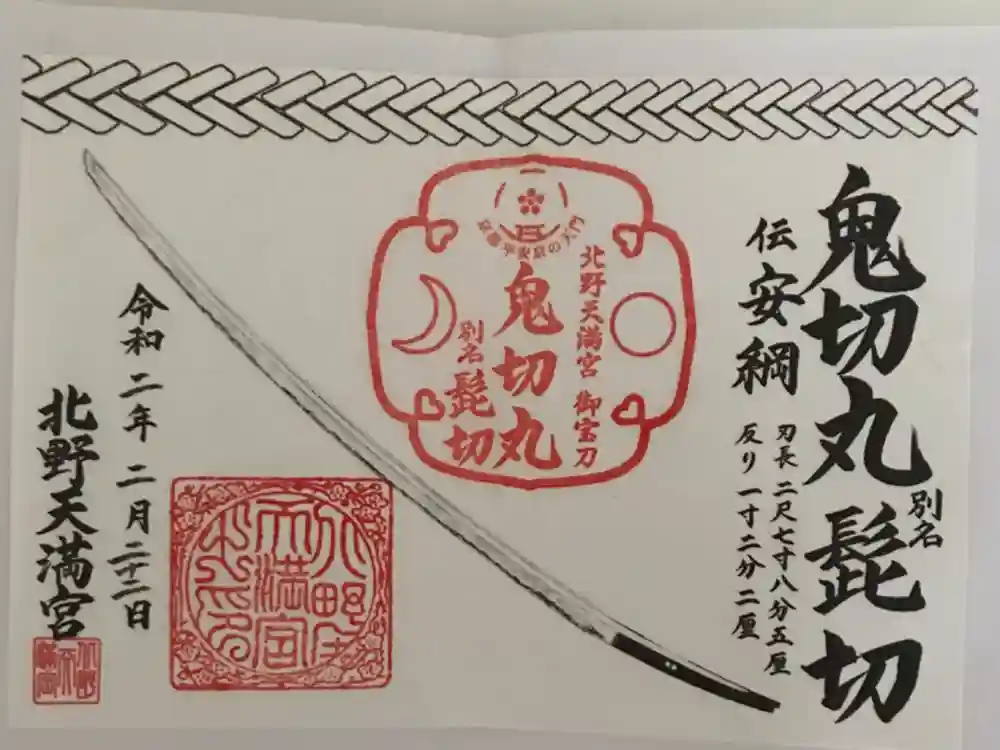 鬼切丸
別名
髭切
伝安綱
刃長 二尺七寸八分五厘
反り 一寸二分二厘
京都平安京の天門
北野天満宮 御宝刀
鬼切丸
別名
髭切
令和 二年 二月二十二日
北野天満宮